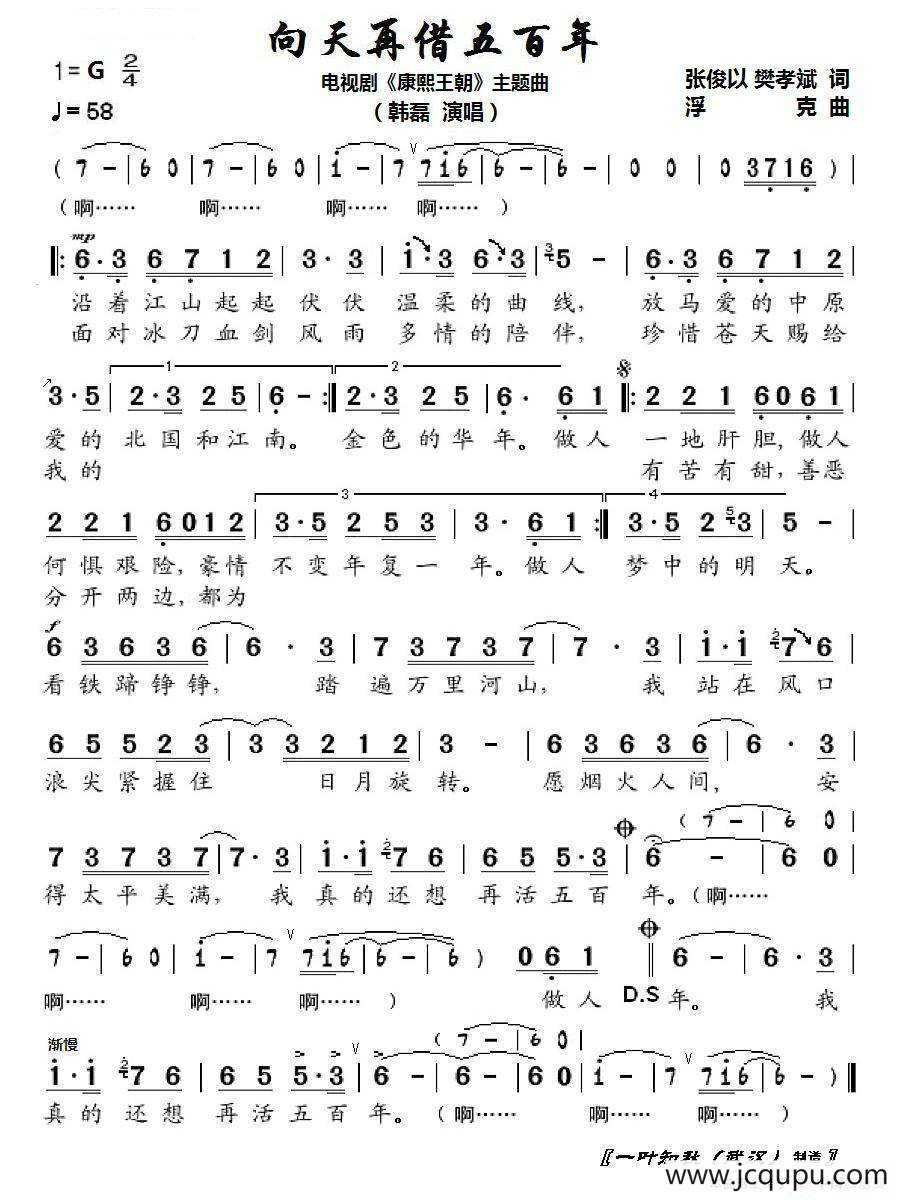 向天再借五百年
1=G 2/4
电视剧《康熙王朝》主题曲
张俊以 樊孝斌 词
♩=58
（韩磊 演唱）
浮 克 曲
( 7 - | 6 0 | 7 - | 6 0 | i - | 7 7i6 | 6 - | 6 - | 0 0 | 0 3716 ) |
（啊…… 啊…… 啊…… 啊……）
mp
‖: 6·3 6 7 1 2 | 3· 3 | i·3 6·3 | 5 - | 6·3 6 7 1 2 |
沿着江山起起伏伏 温柔的曲线, 放马爱的中原
面对冰刀血剑风雨 多情的陪伴, 珍惜苍天赐给
1 2
3·5 | 2·3 2 5 | 6 - :‖ 2·3 2 5 | 6· 6 1 ‖: 2 2 1 6061 |
爱的 北国和江南。 金色的华年。做人 一地肝胆,做人
我的 有苦有甜,善恶
3 4
2 2 1 6012 | 3·5 2 5 3 | 3· 6 1 :‖ 3·5 2 3 | 5 - |
何惧艰险,豪情 不变年复一年。做人 梦中的明天。
分开两边,都为
f
6 3 6 3 6 | 6 · 3 | 7 3 7 3 7 | 7 · 3 | i·i 7 6 |
看铁蹄铮铮, 踏遍万里河山, 我站在风口
6 5 5 2 3 | 3 3 2 1 2 | 3 - | 6 3 6 3 6 | 6 · 3 |
浪尖紧握住 日月旋转。 愿烟火人间, 安
( 7 - | 6 0 |
7 3 7 3 7 | 7· 3 | i·i 7 6 | 6 5 5·3 | 6 - | 6 0 |
得太平美满, 我真的还想再活五百年。（啊……
7 - | 6 0 | i - | 7 7i6 | 6 - | 6 ) 0 6 1 ‖ 6 - | 6 · 3 |
啊…… 啊…… 啊…… ） 做人 D.S 年。 我
渐慢
( 7 - | 6 0 |
i·i 7 6 | 6 5 5·3 | 6 - | 6 - | 6 0 | i - | 7 7i6 | 6 - ) ‖
真的还想 再活五百年。（啊…… 啊…… 啊……）
〖一叶知秋（武汉）制谱〗
www.jcqupu.com